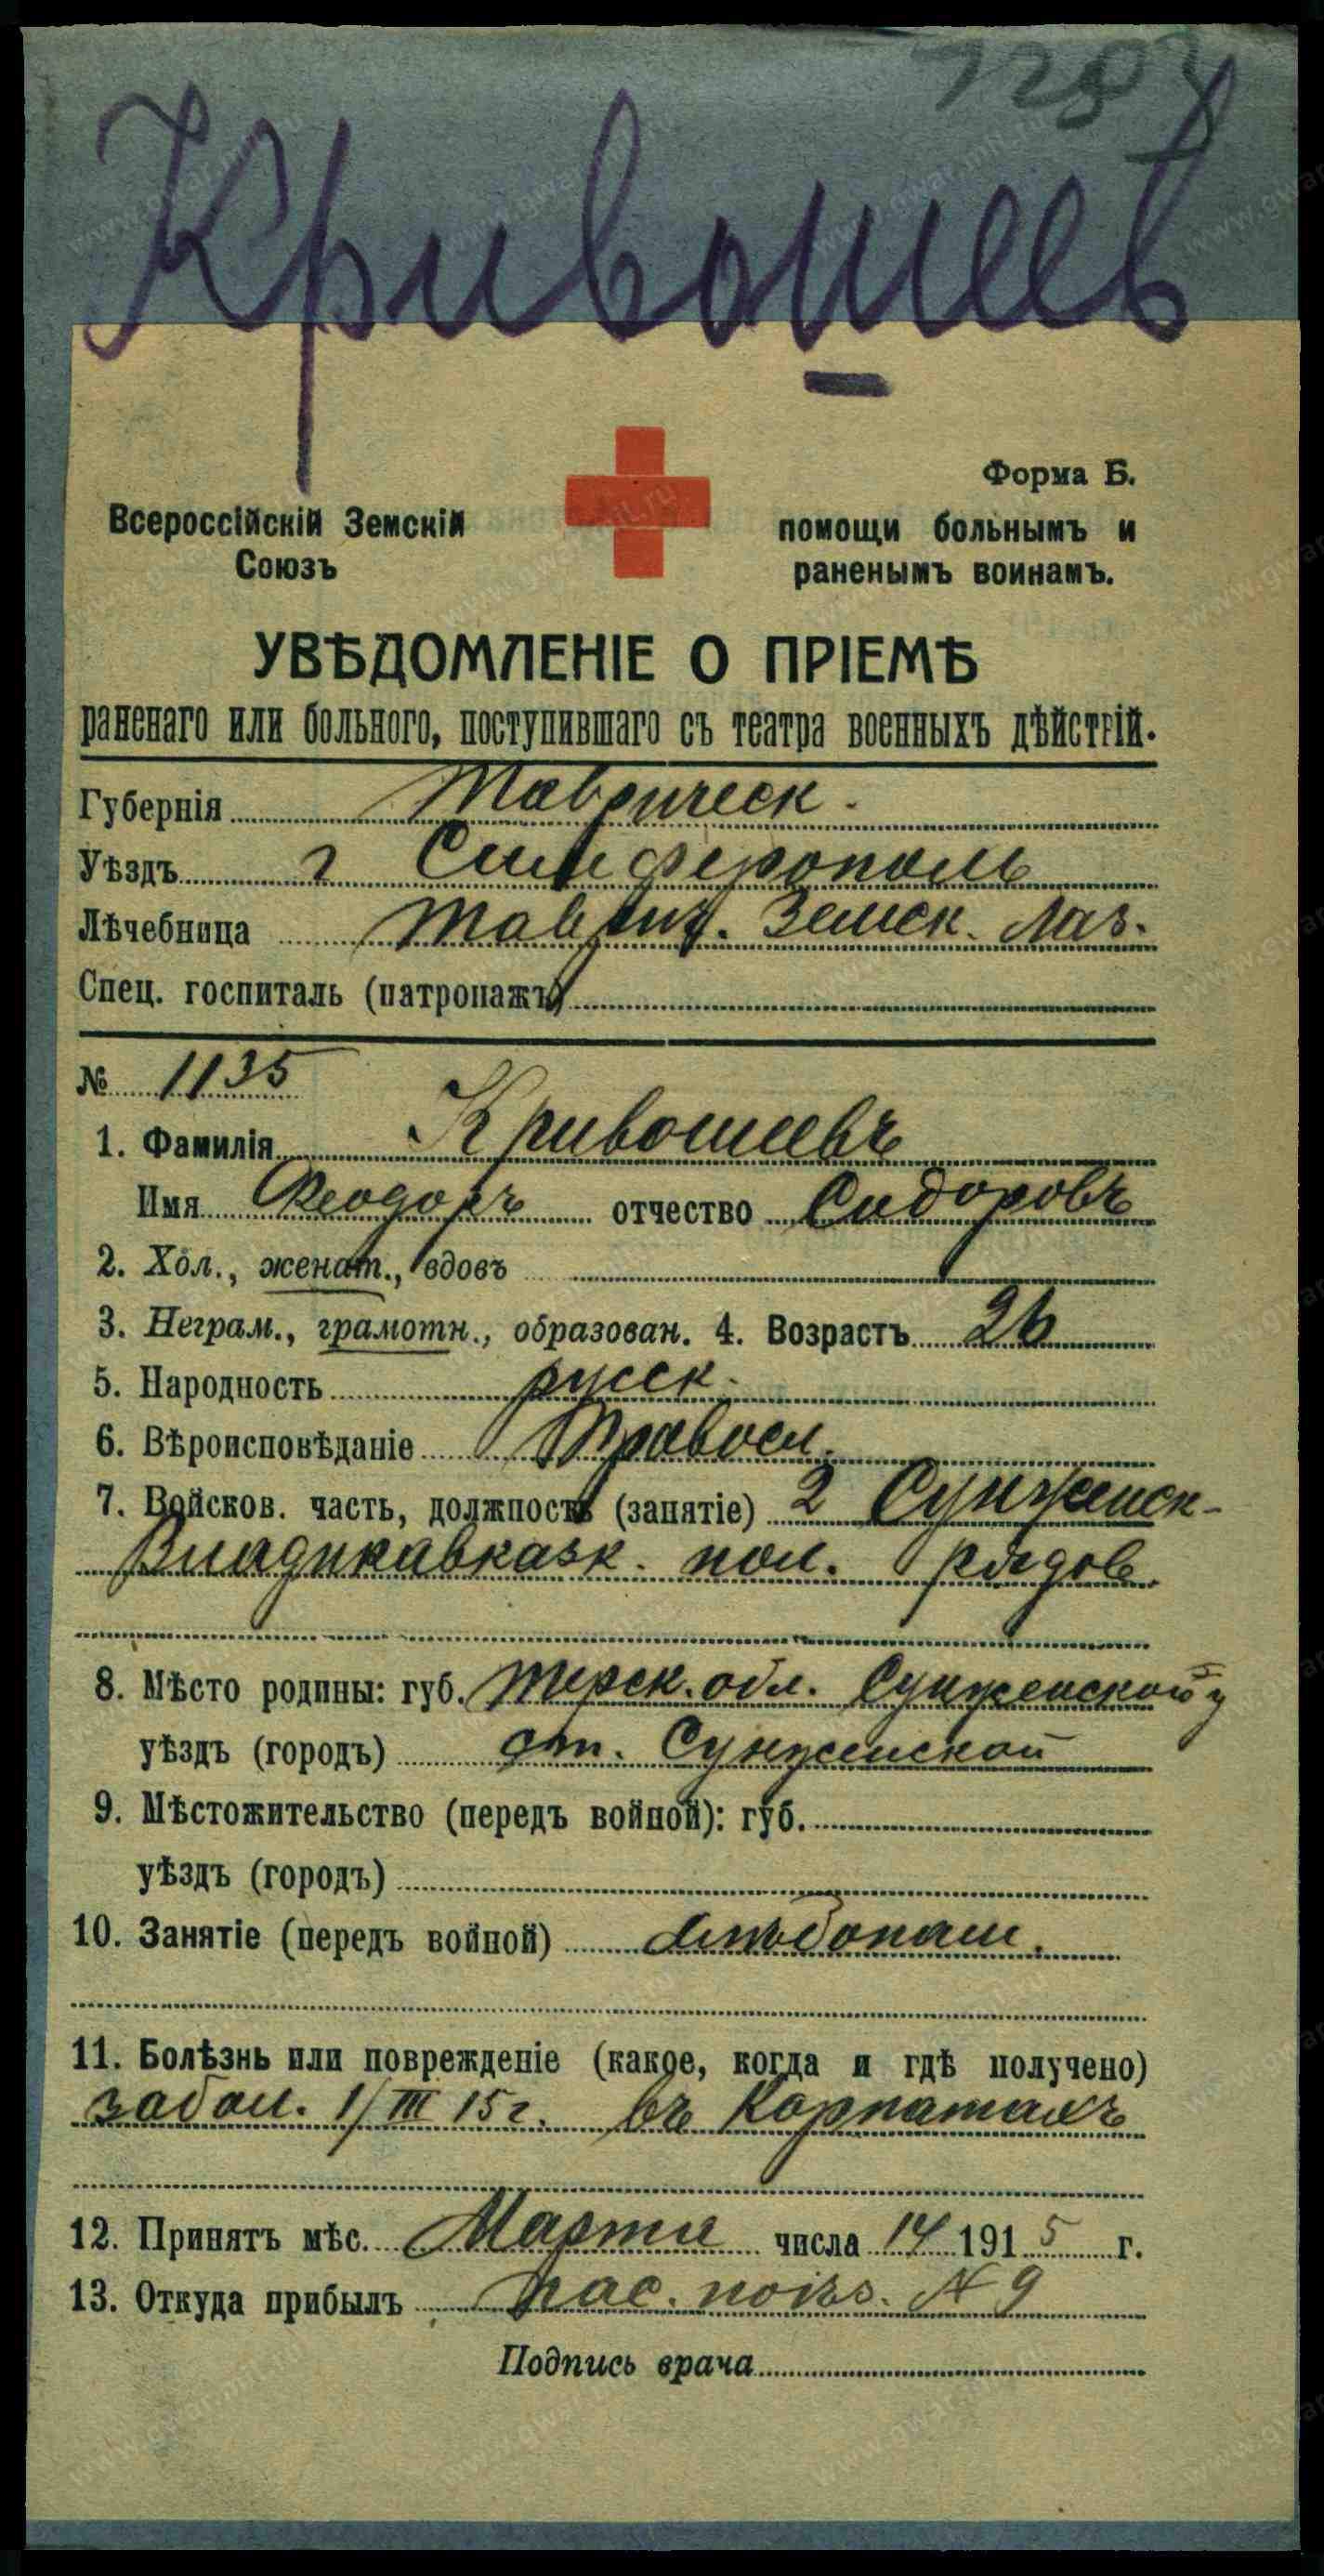 Кривошеев
Форма Б.
Всероссійскій Земскій
Союзъ
помощи больнымъ и
раненымъ воинамъ.
УВѢДОМЛЕНІЕ О ПРІЕМѢ
раненаго или больного, поступившаго съ театра военныхъ дѣйствій.
Губернія Таврическ.
Уѣздъ г Симферополь
Лѣчебница Таврич. Земск. Лаз.
Спец. госпиталь (патронажъ)
№ 1135
1. Фамилія Кривошеевъ
Имя Феодоръ отчество Сидоровъ
2. Хол., женат., вдовъ
3. Неграм., грамотн., образован. 4. Возрастъ 26
5. Народность русск.
6. Вѣроисповѣданіе Правосл.
7. Войсков. часть, должность (занятіе) 2 Сунженск-
Владикавказк. пол. рядов.
8. Мѣсто родины: губ. Терск. обл. Сунженской
уѣздъ (городъ) ст. Сунженской
9. Мѣстожительство (передъ войной): губ.
уѣздъ (городъ)
10. Занятіе (передъ войной) хлѣбопаш.
11. Болѣзнь или поврежденіе (какое, когда и гдѣ получено)
забол. 1/III 15 г. въ Карпатахъ
12. Принятъ мѣс. Марта числа 14 1915 г.
13. Откуда прибылъ пас. поѣз. № 9
Подпись врача